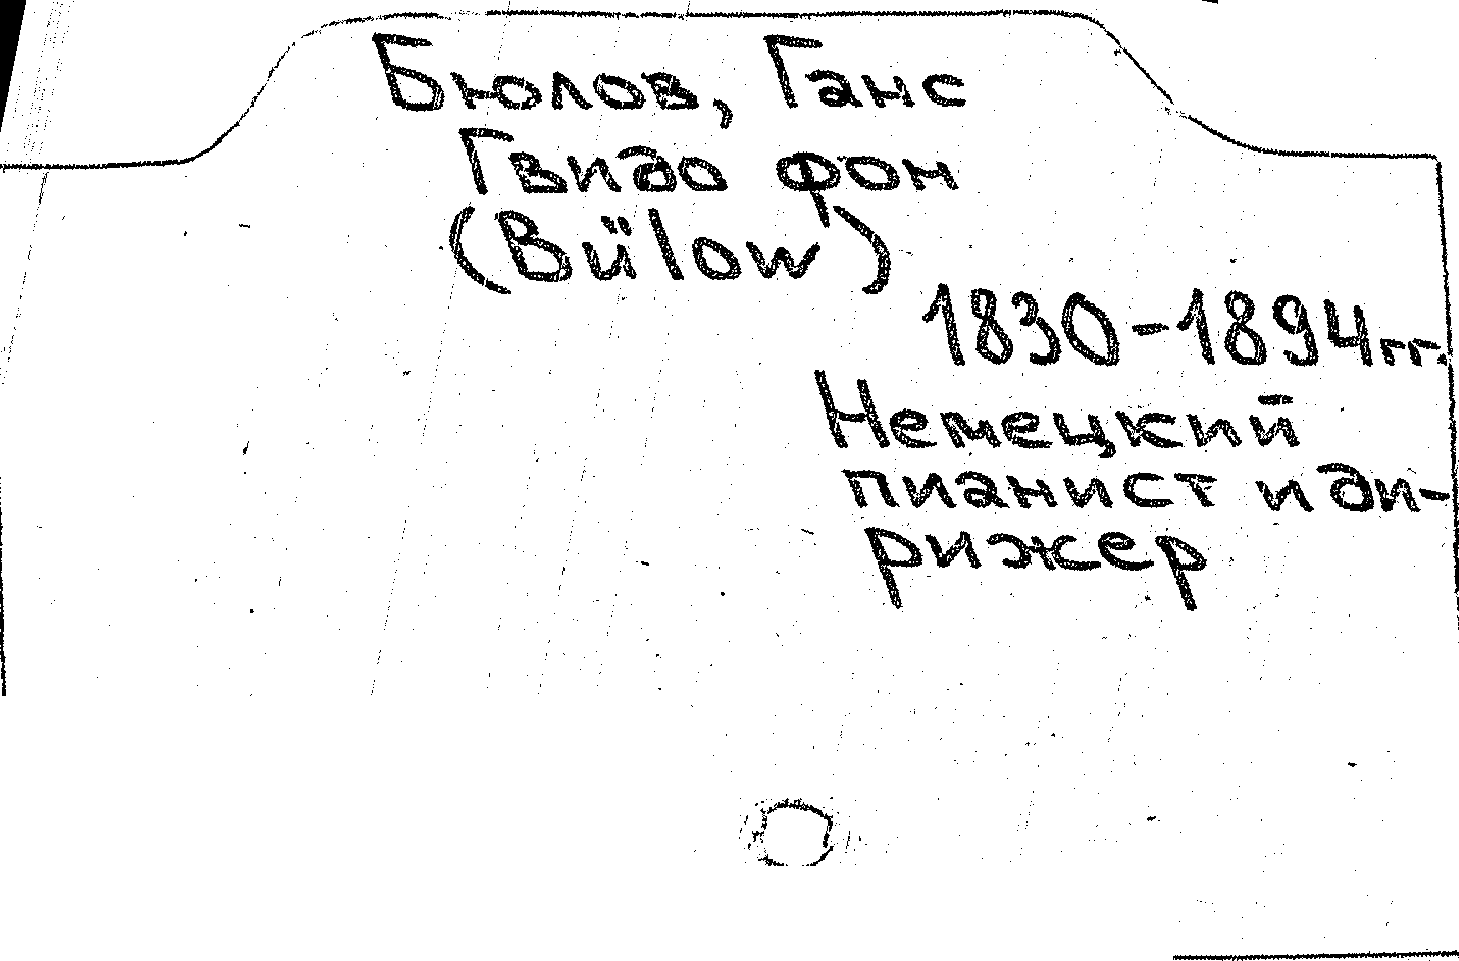 Бюлов, Ганс
Гвидо фон
(Bülow)
1830-1894гг.
Немецкий
пианист и ди-
рижер